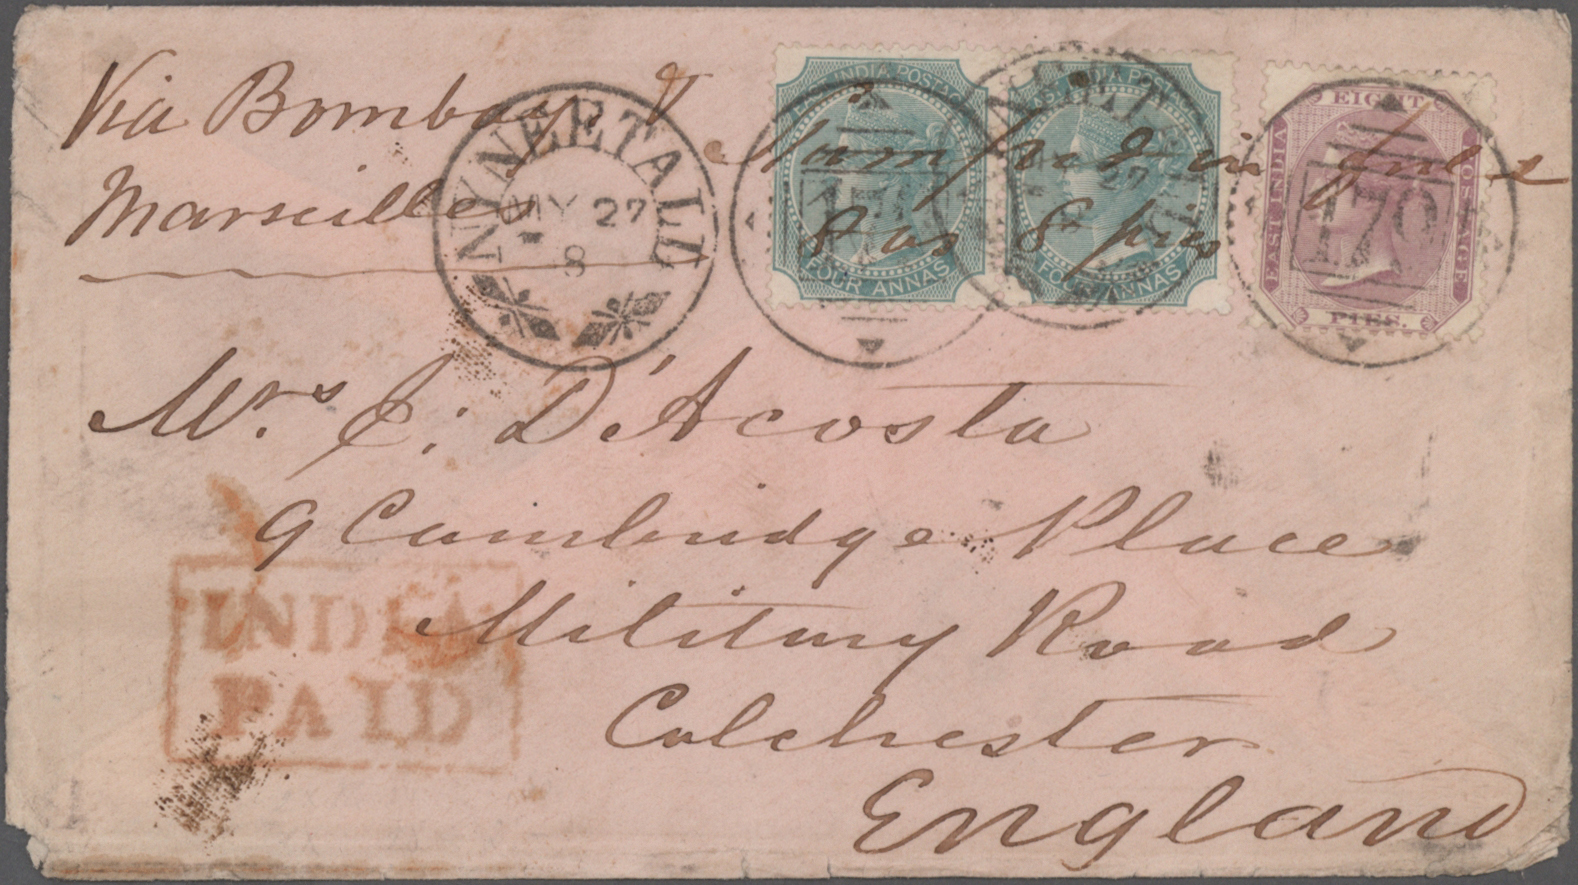 Via Bombay &
Marseilles
Stamped in full
8 as 8 pies
NYNEETALL
MY 27
8
EAST INDIA POSTAGE
FOUR ANNAS
INDIA POSTAGE
FOUR ANNAS
27
EIGHT
EAST INDIA POSTAGE
PIES.
170
Mrs. J. D'Acosta
9 Cambridge Place
Military Road
Colchester
England
INDIA
PAID